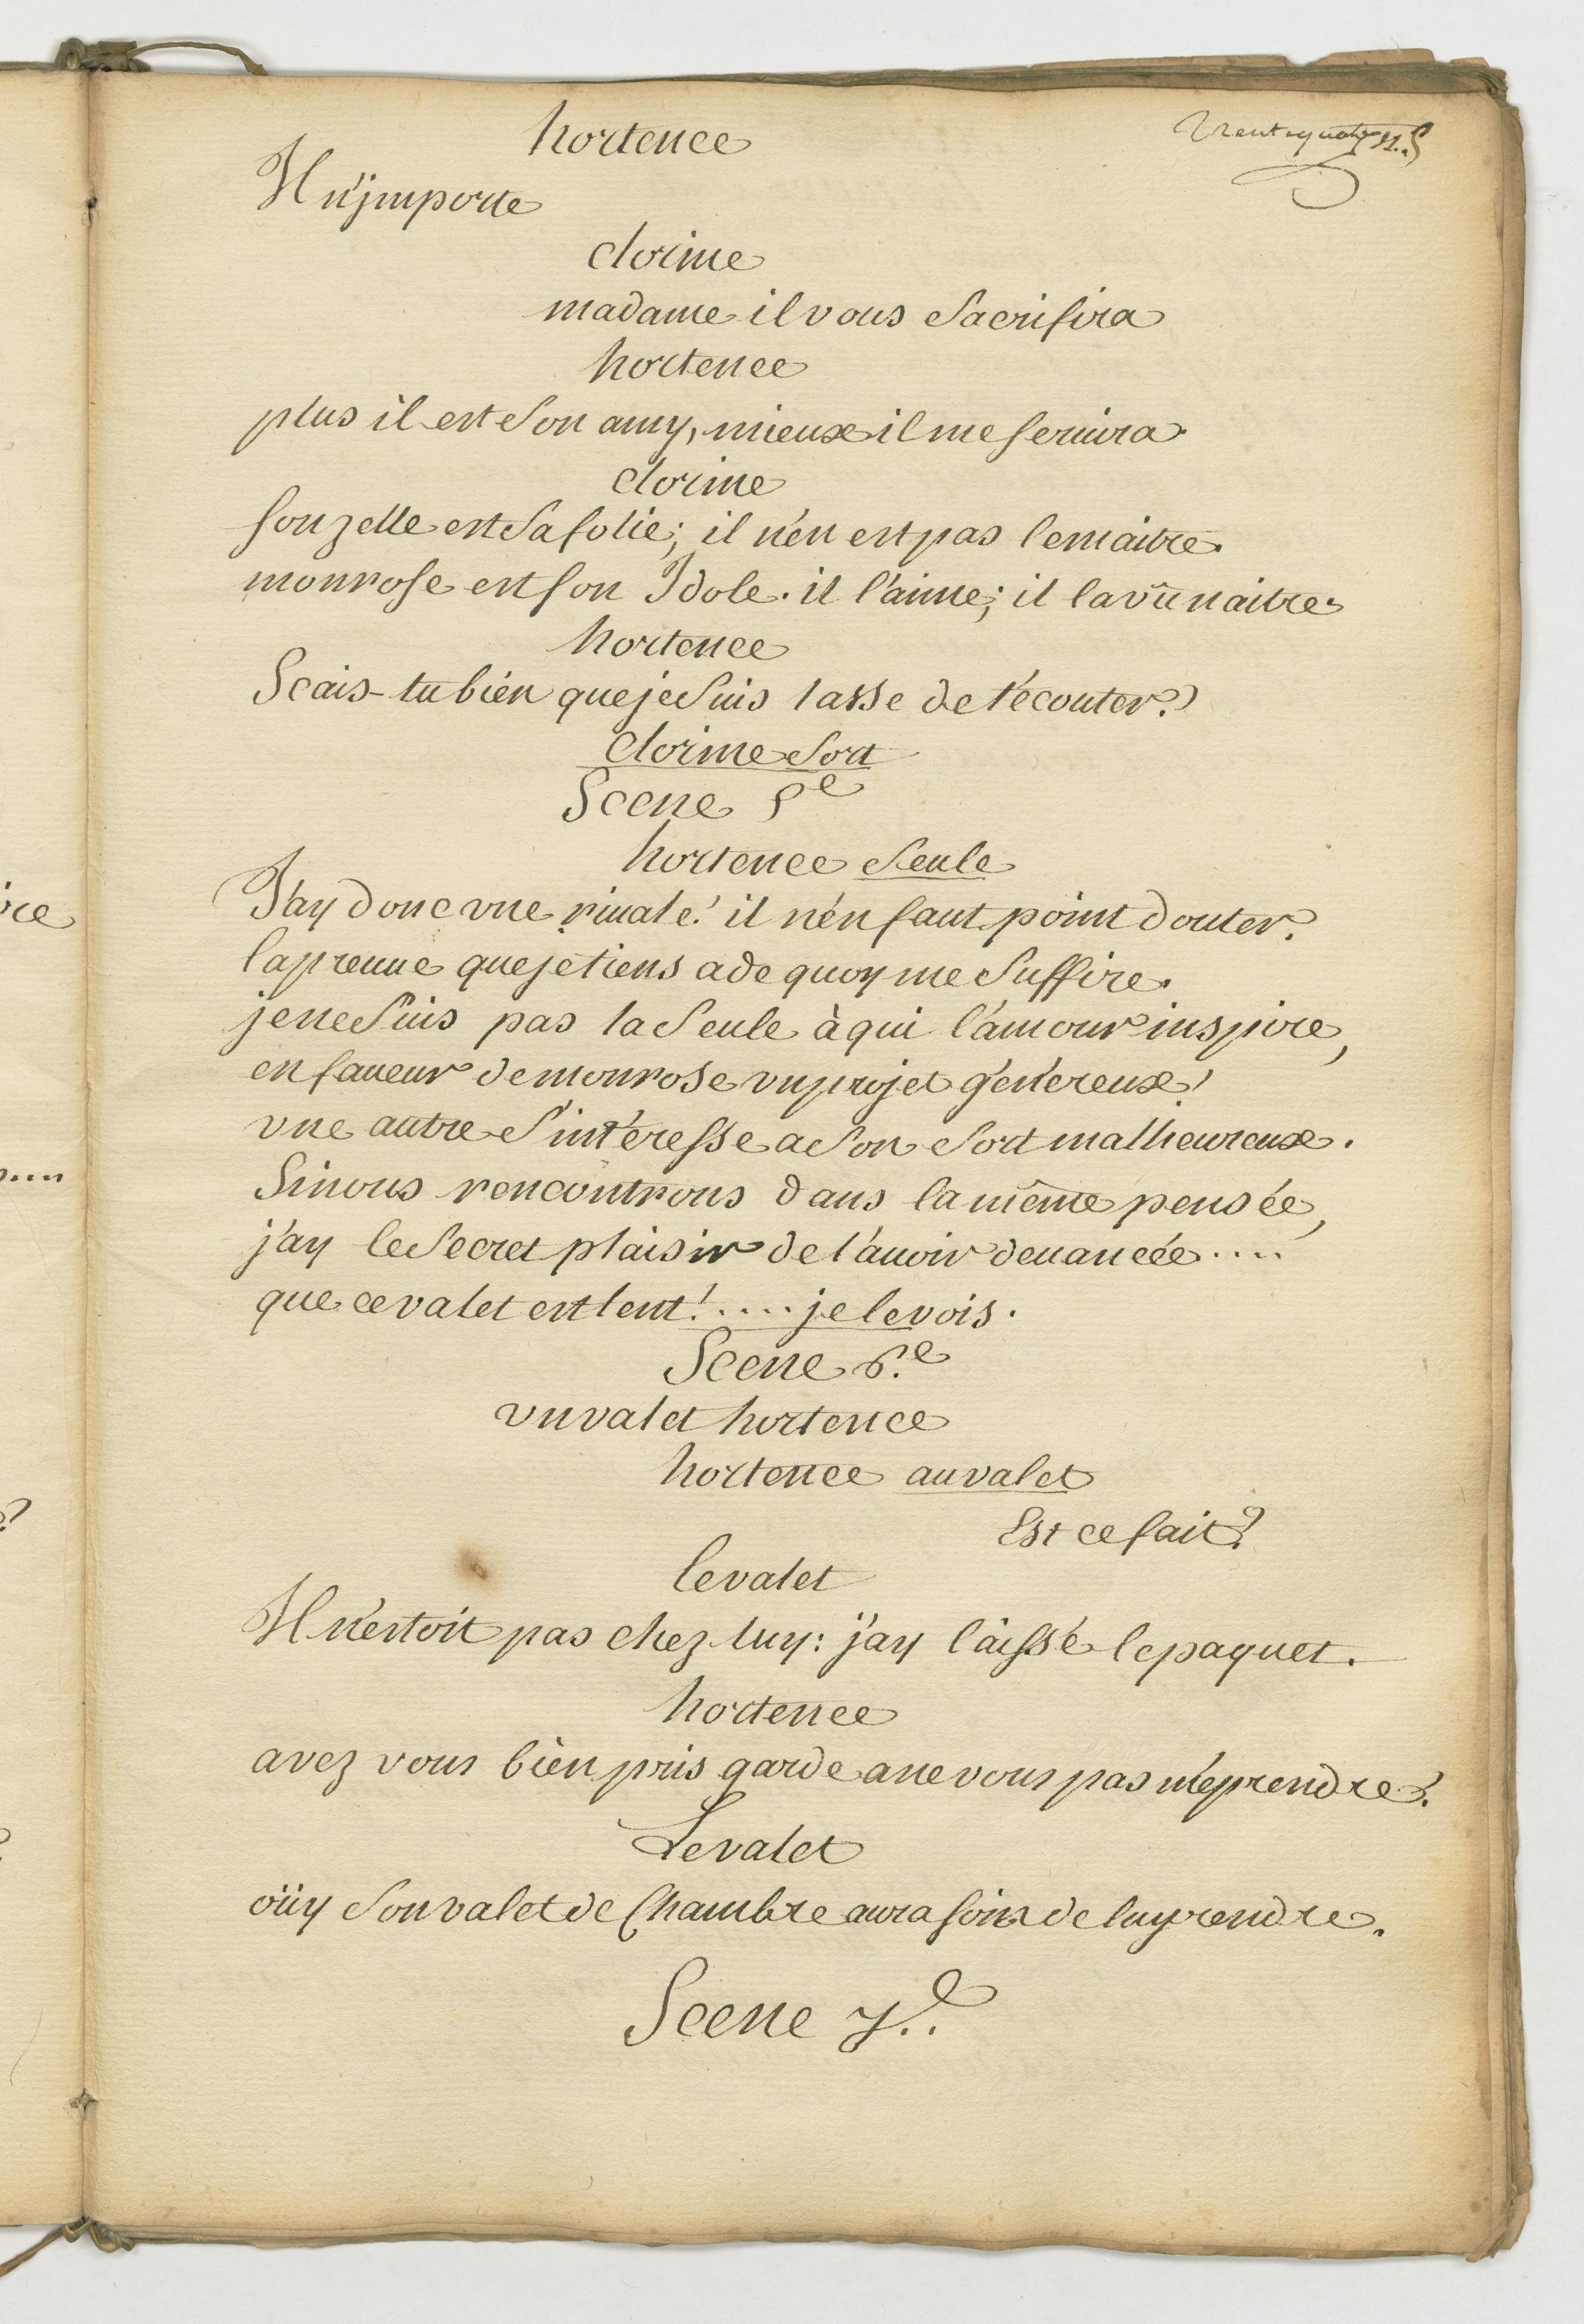 hortence
trente quatre
Il n'jmporte
clorine
madame il vous Sacrifira
hortence
plus il est Son amy, mieux il me seruira
clorine
son zelle est Sa folie; il n'en est pas le maitre.
monrose est son Idole. il l'aime; il la vû naitre
hortence
Scais-tu bien que je Suis lasse de t'écouter?
clorine Sort
Scene 5e
hortence Seule
J'ay donc vne riuale! il n'en faut point douter.
la preuue que je tiens a de quoy me Suffire.
je ne Suis pas la Seule à qui l'amour inspire,
en faueur de monrose vn projet généreux!
vne autre S'intéresse a Son Sort malheureux.
Si nous rencontrons dans la même pensée,
j'ay le Secret plaisir de l'auoir deuancée....
que ce valet est lent!.... je le vois.
Scene 6.e
vn valet hortence
hortence au valet
Est ce fait?
le valet
Il n'estoit pas chez luy: j'ay laissé le paquet.
hortence
avez vous bien pris garde a ne vous pas méprendre?
Le valet
oüy Son valet de Chambre aura soin de luy rendre.
Scene 7.e